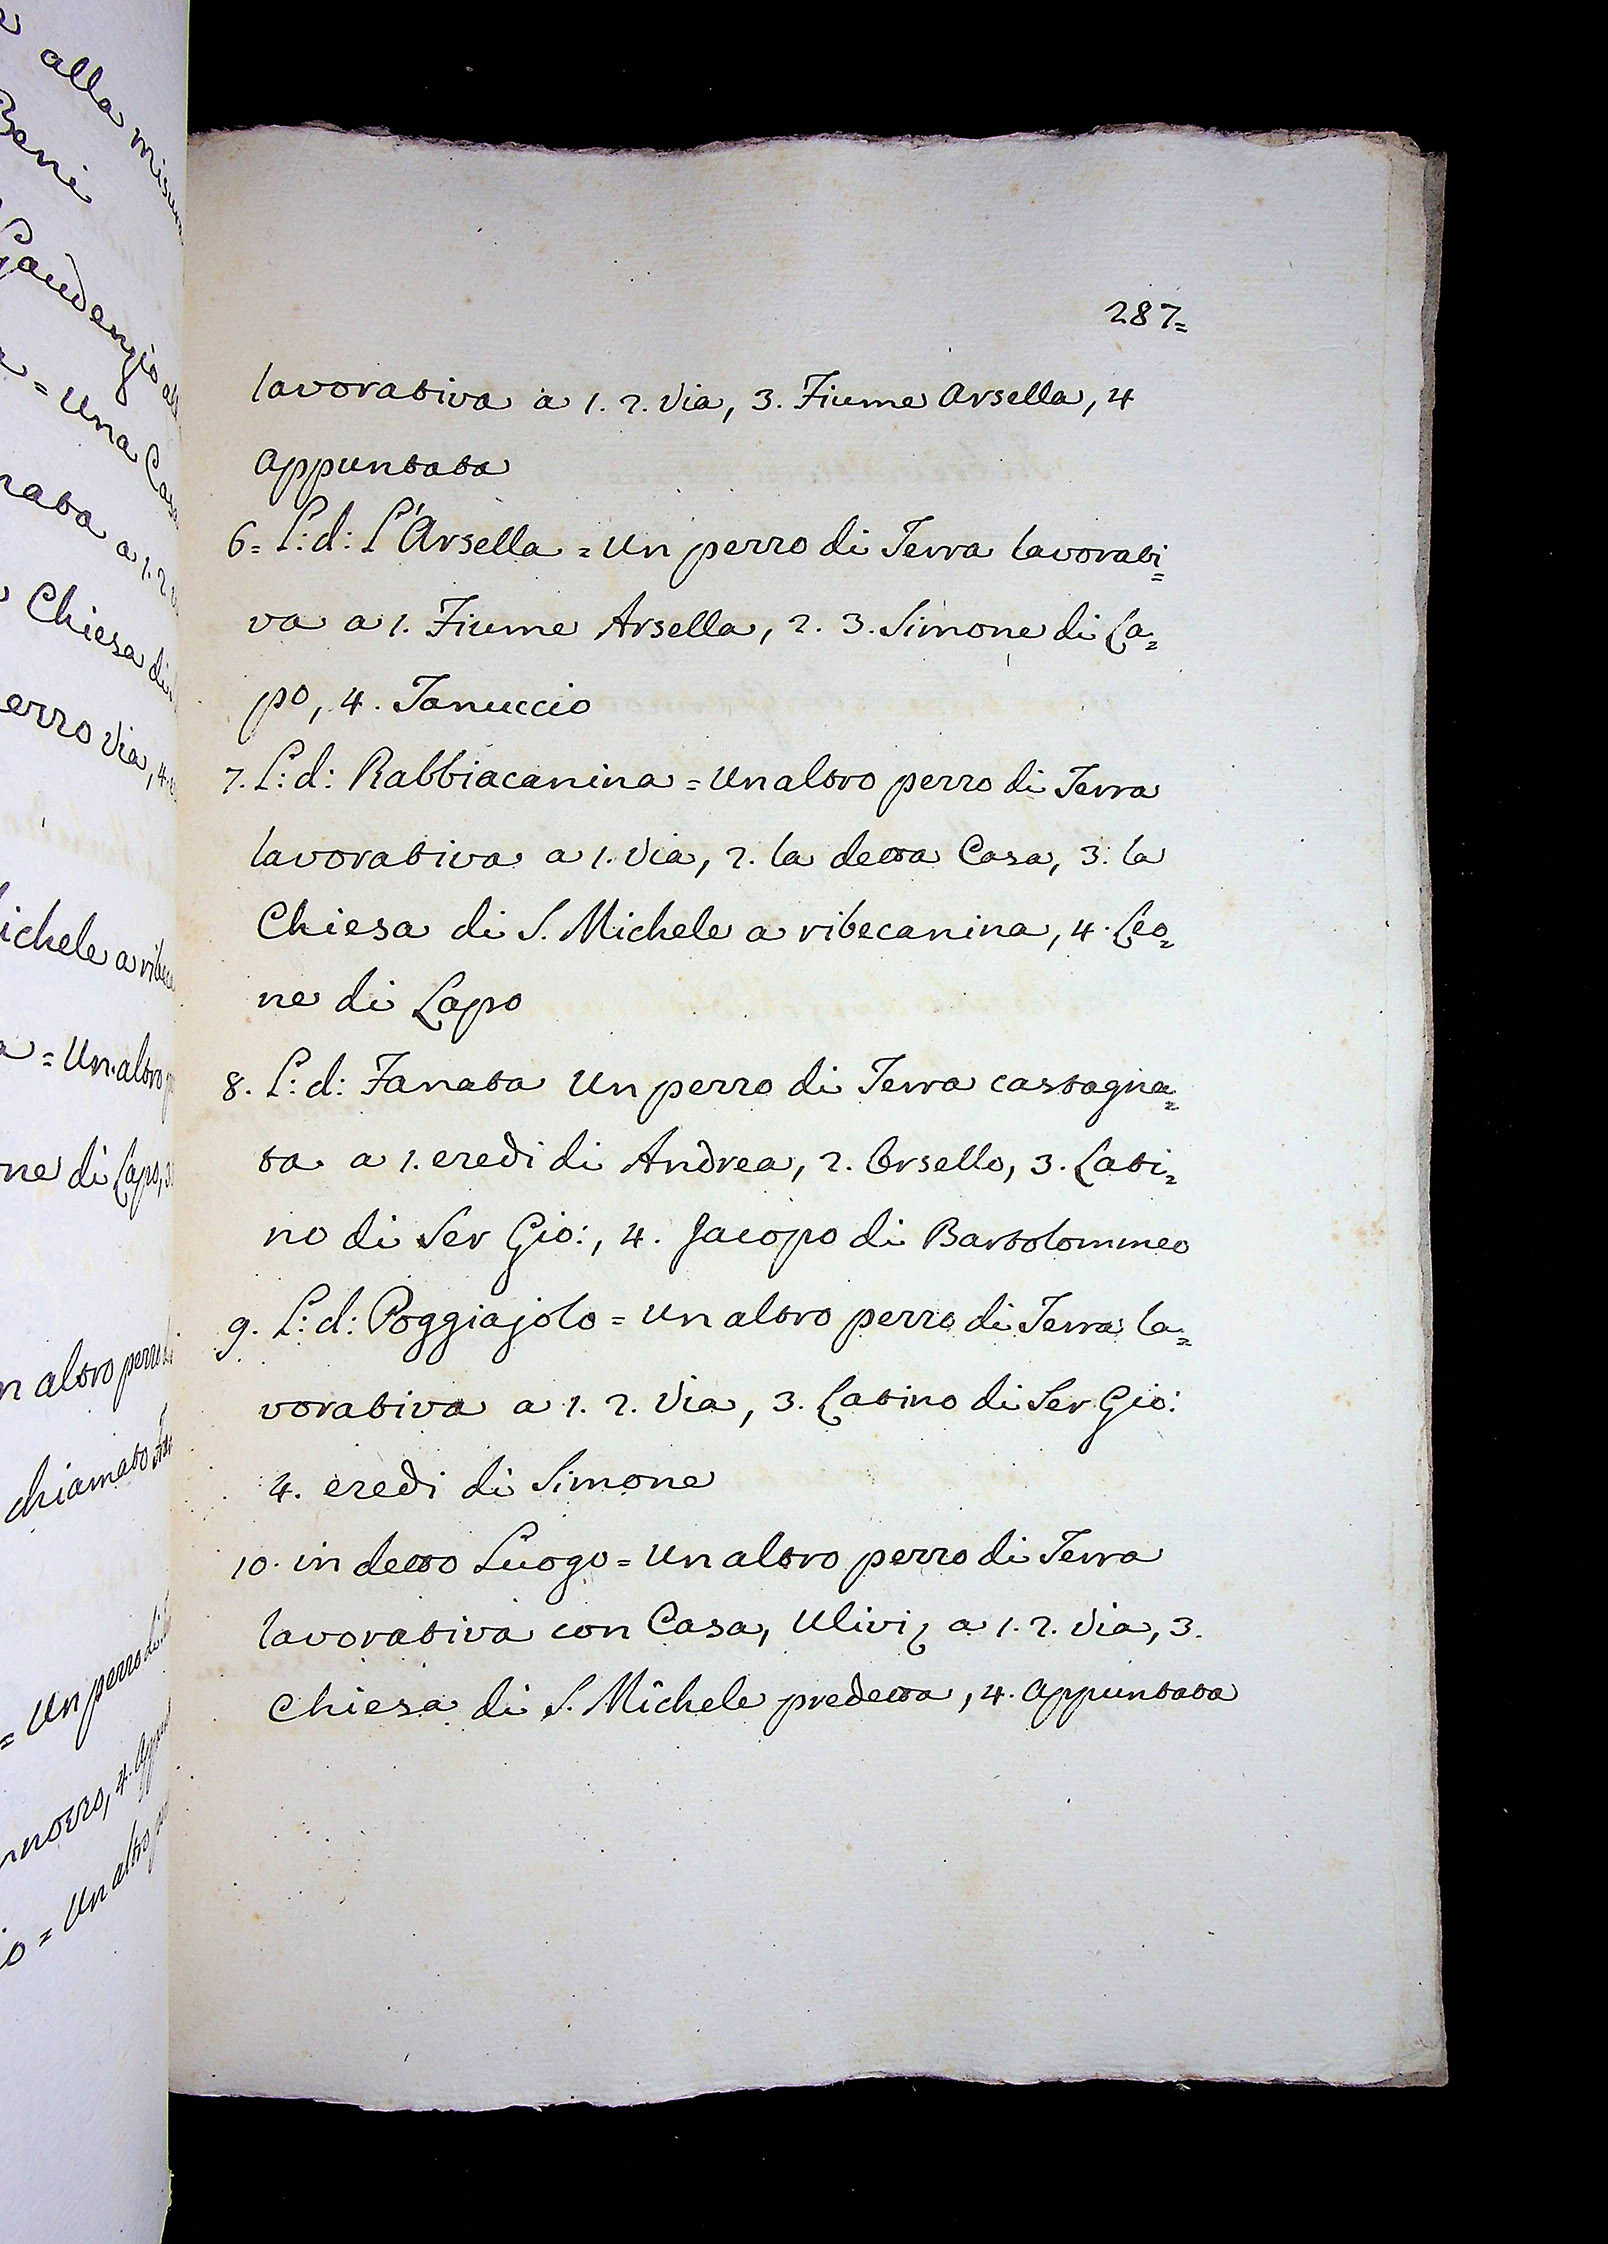 alla misu
Beni
Gaudenzio
= Una Casa
nata a 1. 2
Chiesa di
erro Via, 4.
ichele a ribec
= Un altro
ne di Lapo, 3
n altro pezzo di
chiamato
= Un pezzo di
4. Appun
o = Un altro
287=
lavorativa a 1. 2. Via, 3. Fiume Arsella, 4
Appuntata
6= L: d: L'Arsella = Un pezzo di Terra lavorati=
va a 1. Fiume Arsella, 2. 3. Simone di La=
po, 4. Januccio
7. L: d: Rabbiacanina = Un altro pezzo di Terra
lavorativa a 1. Via, 2. la detta Casa, 3. la
Chiesa di S. Michele a ribecanina, 4. Leo=
ne di Lapo
8. L: d: Fanata Un pezzo di Terra castagna=
ta a 1. eredi di Andrea, 2. Orsello, 3. Lati=
no di Ser Gio:, 4. Jacopo di Bartolommeo
9. L: d: Poggiajolo = Un altro pezzo di Terra la=
vorativa a 1. 2. Via, 3. Latino di Ser Gio:
4. eredi di Simone
10. in detto Luogo = Un altro pezzo di Terra
lavorativa con Casa, Ulivi, a 1. 2. Via, 3.
Chiesa di S. Michele predetta, 4. Appuntata